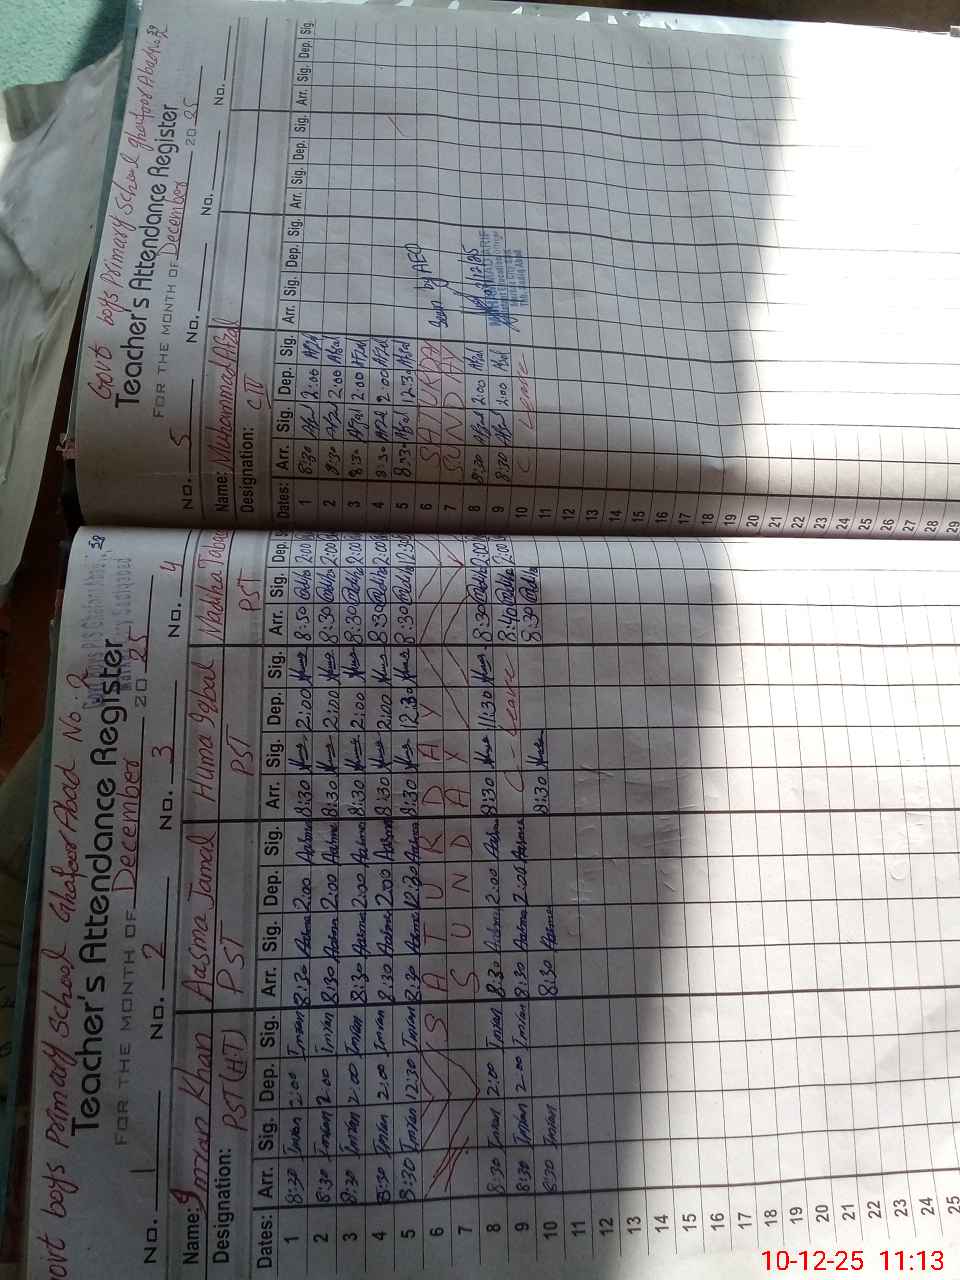 Govt boys Primary School Ghafoor Abad No 2
Teacher's Attendance Register
FOR THE MONTH OF December 2025
No. 1 No. 2 No. 3 No. 4
Name: Imran Khan Aasma Jamal Huma Iqbal Madha
Designation: PST (H.T) PST PST PST
Dates: Arr. Sig. Dep. Sig. Arr. Sig. Dep. Sig. Arr. Sig. Dep. Sig. Arr. Sig. Dep.
1 8:30 Imran 2:00 Imran 8:30 Aasma 2:00 Aasma 8:30 2:00 8:50 2:00
2 8:30 Imran 2:00 Imran 8:30 Aasma 2:00 Aasma 8:30 2:00 8:30 2:00
3 8:30 Imran 2:00 Imran 8:30 Aasma 2:00 Aasma 8:30 2:00 8:30 2:00
4 8:30 Imran 2:00 Imran 8:30 Aasma 2:00 Aasma 8:30 2:00 8:30 2:00
5 8:30 Imran 12:30 Imran 8:30 Aasma 12:30 Aasma 8:30 12:30 8:30 12:30
6 S A T U R D A Y
7 S U N D A Y
8 8:30 Imran 2:00 Imran 8:30 Aasma 2:00 Aasma 8:30 11:30 8:30 2:00
9 8:30 Imran 2:00 Imran 8:30 Aasma 2:00 Aasma C - Leave 8:40 2:00
10 8:30 Imran 8:30 Aasma 8:30 8:30
11
12
13
14
15
16
17
18
19
20
21
22
23
24
25
Govt boys Primary School Ghafoor Abad No 2
Teacher's Attendance Register
FOR THE MONTH OF December 2025
No. 5 No. No. No.
Name: Muhammad Afzal
Designation:
Dates: Arr. Sig. Dep. Sig. Arr. Sig. Dep. Sig. Arr. Sig. Dep. Sig. Arr. Sig. Dep. Sig.
1 8:30 Afzal 2:00 Afzal
2 8:30 Afzal 2:00 Afzal
3 8:30 Afzal 2:00 Afzal
4 8:30 Afzal 2:00 Afzal
5 8:30 Afzal 12:30 Afzal
6 SATURDAY Seen by AEO
7 SUNDAY
8 8:30 Afzal 2:00 Afzal
9 8:30 Afzal 2:00 Afzal
10 C Leave
11
12
13
14
15
16
17
18
19
20
21
22
23
24
25
26
27
28
29
10-12-25 11:13